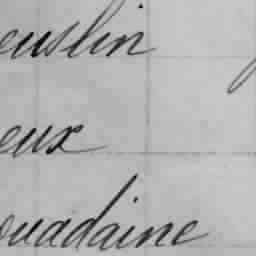 euslin
eux
ouadaine